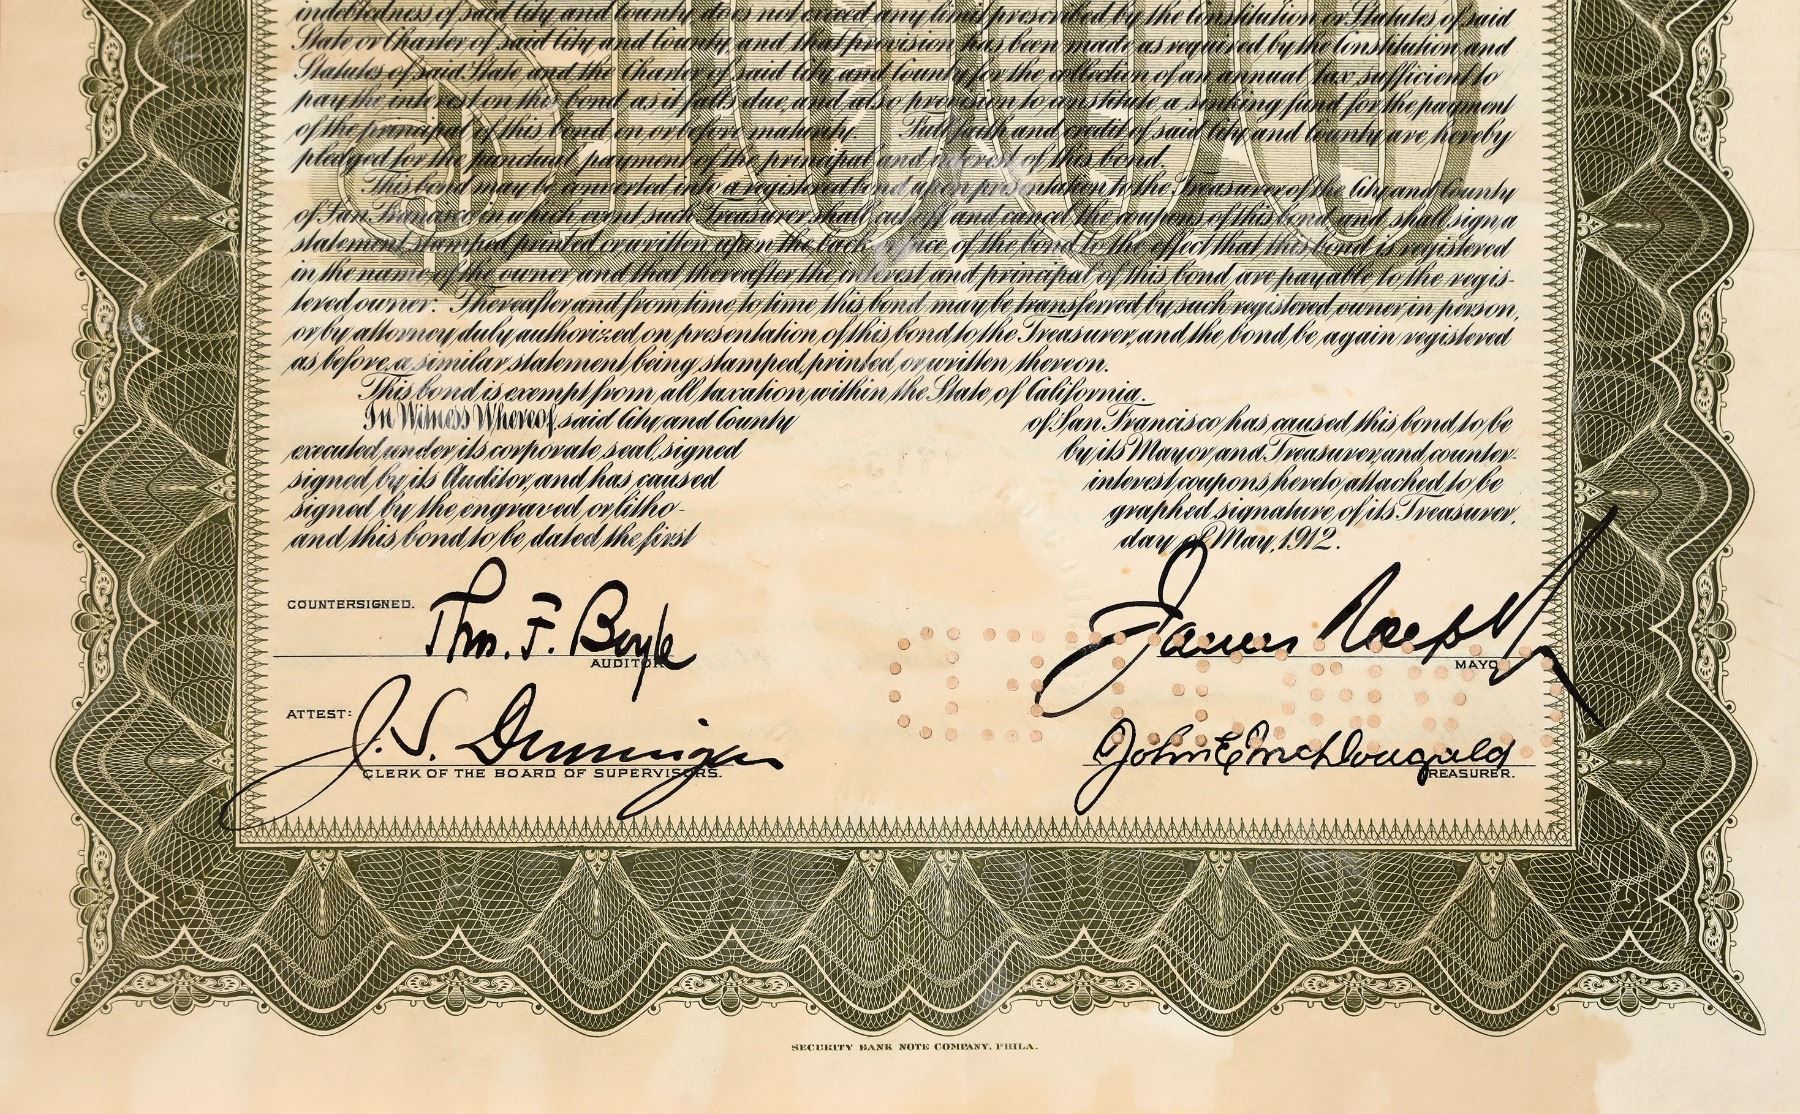 indebtedness of said City and County does not exceed any limit prescribed by the Constitution or Statutes of said
State or Charter of said City and County, and that provision has been made as required by the Constitution and
Statutes of said State and the Charter of said City and County for the collection of an annual tax sufficient to
pay the interest on this bond as it falls due, and also provision to constitute a sinking fund for the payment
of the principal of this bond on or before maturity. Full faith and credit of said City and County are hereby
pledged for the punctual payment of the principal and interest of this bond.
This bond may be converted into a registered bond upon presentation to the Treasurer of the City and County
of San Francisco in which event such Treasurer shall cut off and cancel the coupons of this bond and shall sign a
statement stamped printed or written upon the back or face of the bond to the effect that this bond is registered
in the name of the owner and that thereafter the interest and principal of this bond are payable to the regis-
tered owner. Thereafter and from time to time this bond may be transferred by such registered owner in person,
or by attorney duly authorized on presentation of this bond to the Treasurer, and the bond be again registered
as before, a similar statement being stamped, printed, or written thereon.
This bond is exempt from all taxation within the State of California.
In Witness Whereof, said City and County of San Francisco has caused this bond to be
executed under its corporate seal, signed by its Mayor and Treasurer, and counter-
signed by its Auditor, and has caused interest coupons hereto attached to be
signed by the engraved or litho- graphed signature of its Treasurer,
and this bond to be dated the first day of May, 1912.
COUNTERSIGNED.
Thos. F. Boyle
AUDITOR
James Rolph Jr
MAYOR
ATTEST:
J. S. Dunnigan
CLERK OF THE BOARD OF SUPERVISORS.
John E McDougald
TREASURER.
SECURITY BANK NOTE COMPANY, PHILA.